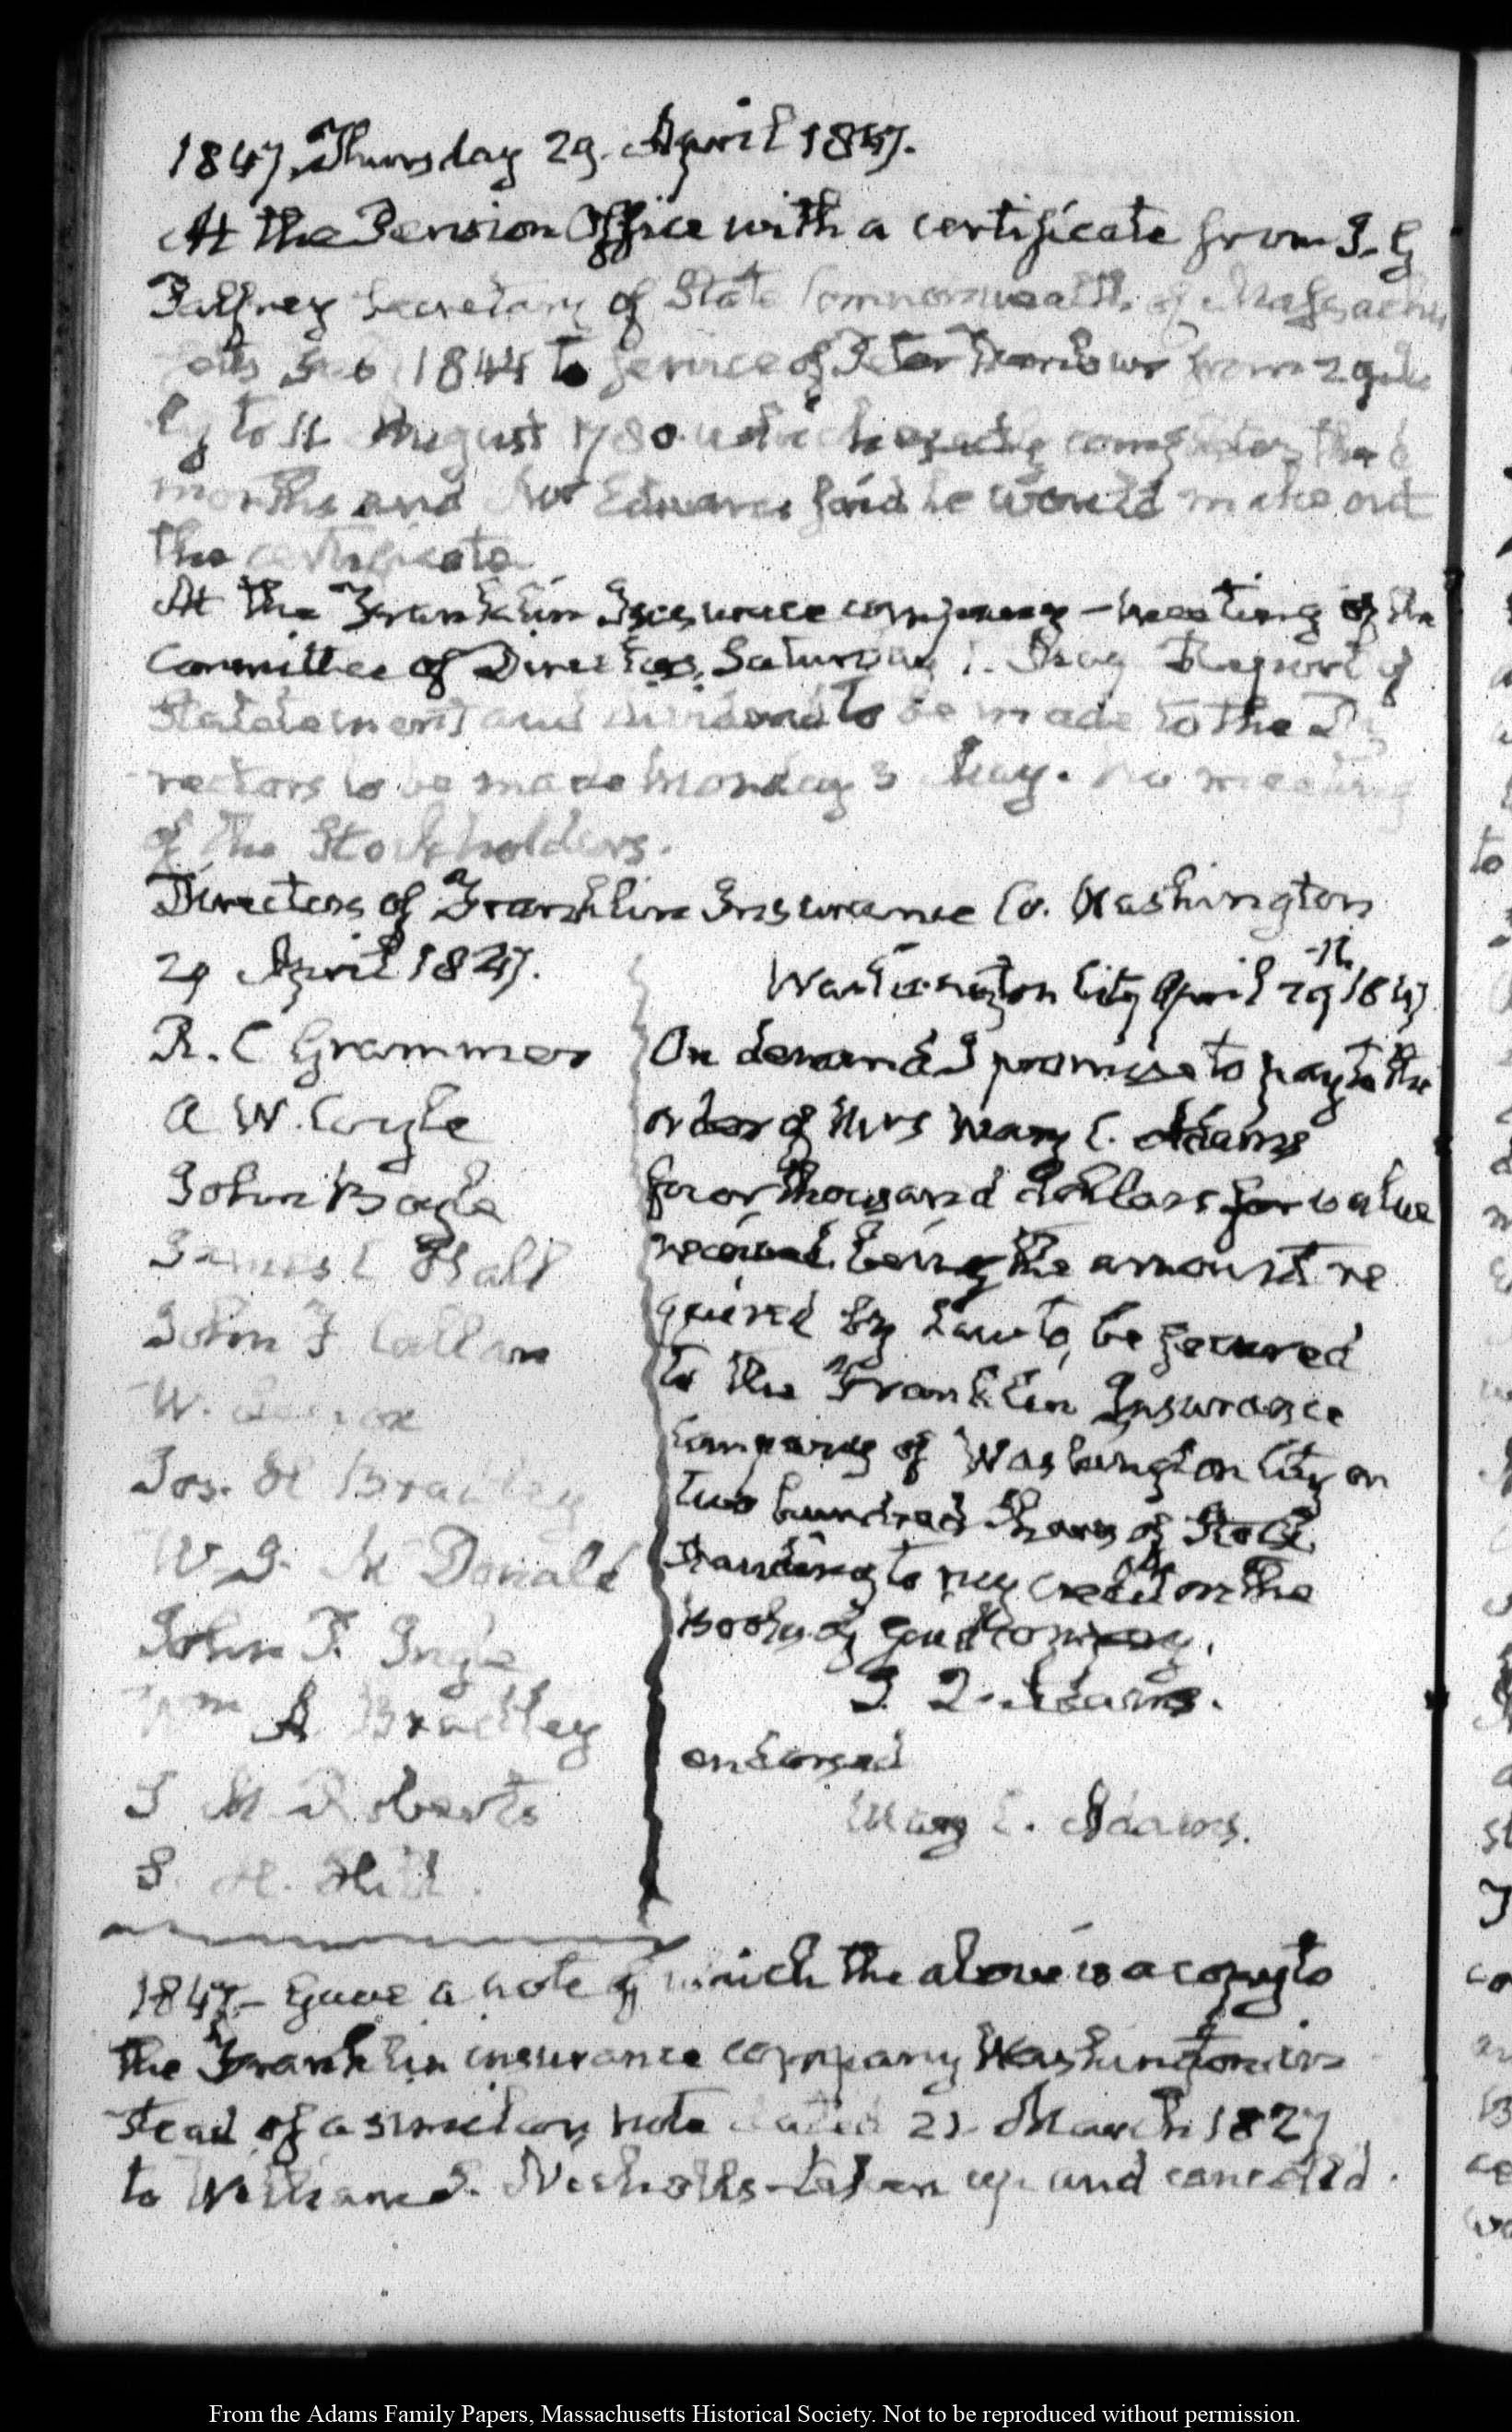 1847. Thursday 29. April 1847.
At the Pension Office with a certificate from J. G
Palfrey Secretary of State Commonwealth of Massachu
setts 1844 to service of Peter from 29 Ju
ly to 11 August 1780. which exactly the 6
months and Mr Edwards said he would make out
the certificate
At the Franklin Insurance company – meeting of the
Committee of Directors, Saturday 1. May Report of
Statement and dividend to be made to the Di
rectors to be made Monday 3 May. No meeting
of the Stockholders.
Directors of Franklin Insurance Co. Washington
29 April 1847.
R. C Grammer
A W. Coyle
John Boyle
James C Hall
John F Callan
W. Lenox
Jos. H Bradley
W. J. Mc Donald
John P. Ingle
Wm A Bradley
J M Roberts
S. H. Hill.
Washington City April 29th 1847
On demand I promise to pay to the
order of Mrs Mary C. Adams
four thousand dollars for value
received, being the amount re
quired by Law to be secured
to the Franklin Insurance
Company of Washington City on
two hundred Shares of Stock
standing to my credit on the
Books of said Company.
J. Q. Adams.
endorsed
Mary C. Adams.
1847– Gave a note of which the above is a copy to
the Franklin insurance company Washington in
stead of a similar note dated 21. March 1827
to William S. Nicholls– taken up and cancell'd.
From the Adams Family Papers, Massachusetts Historical Society. Not to be reproduced without permission.